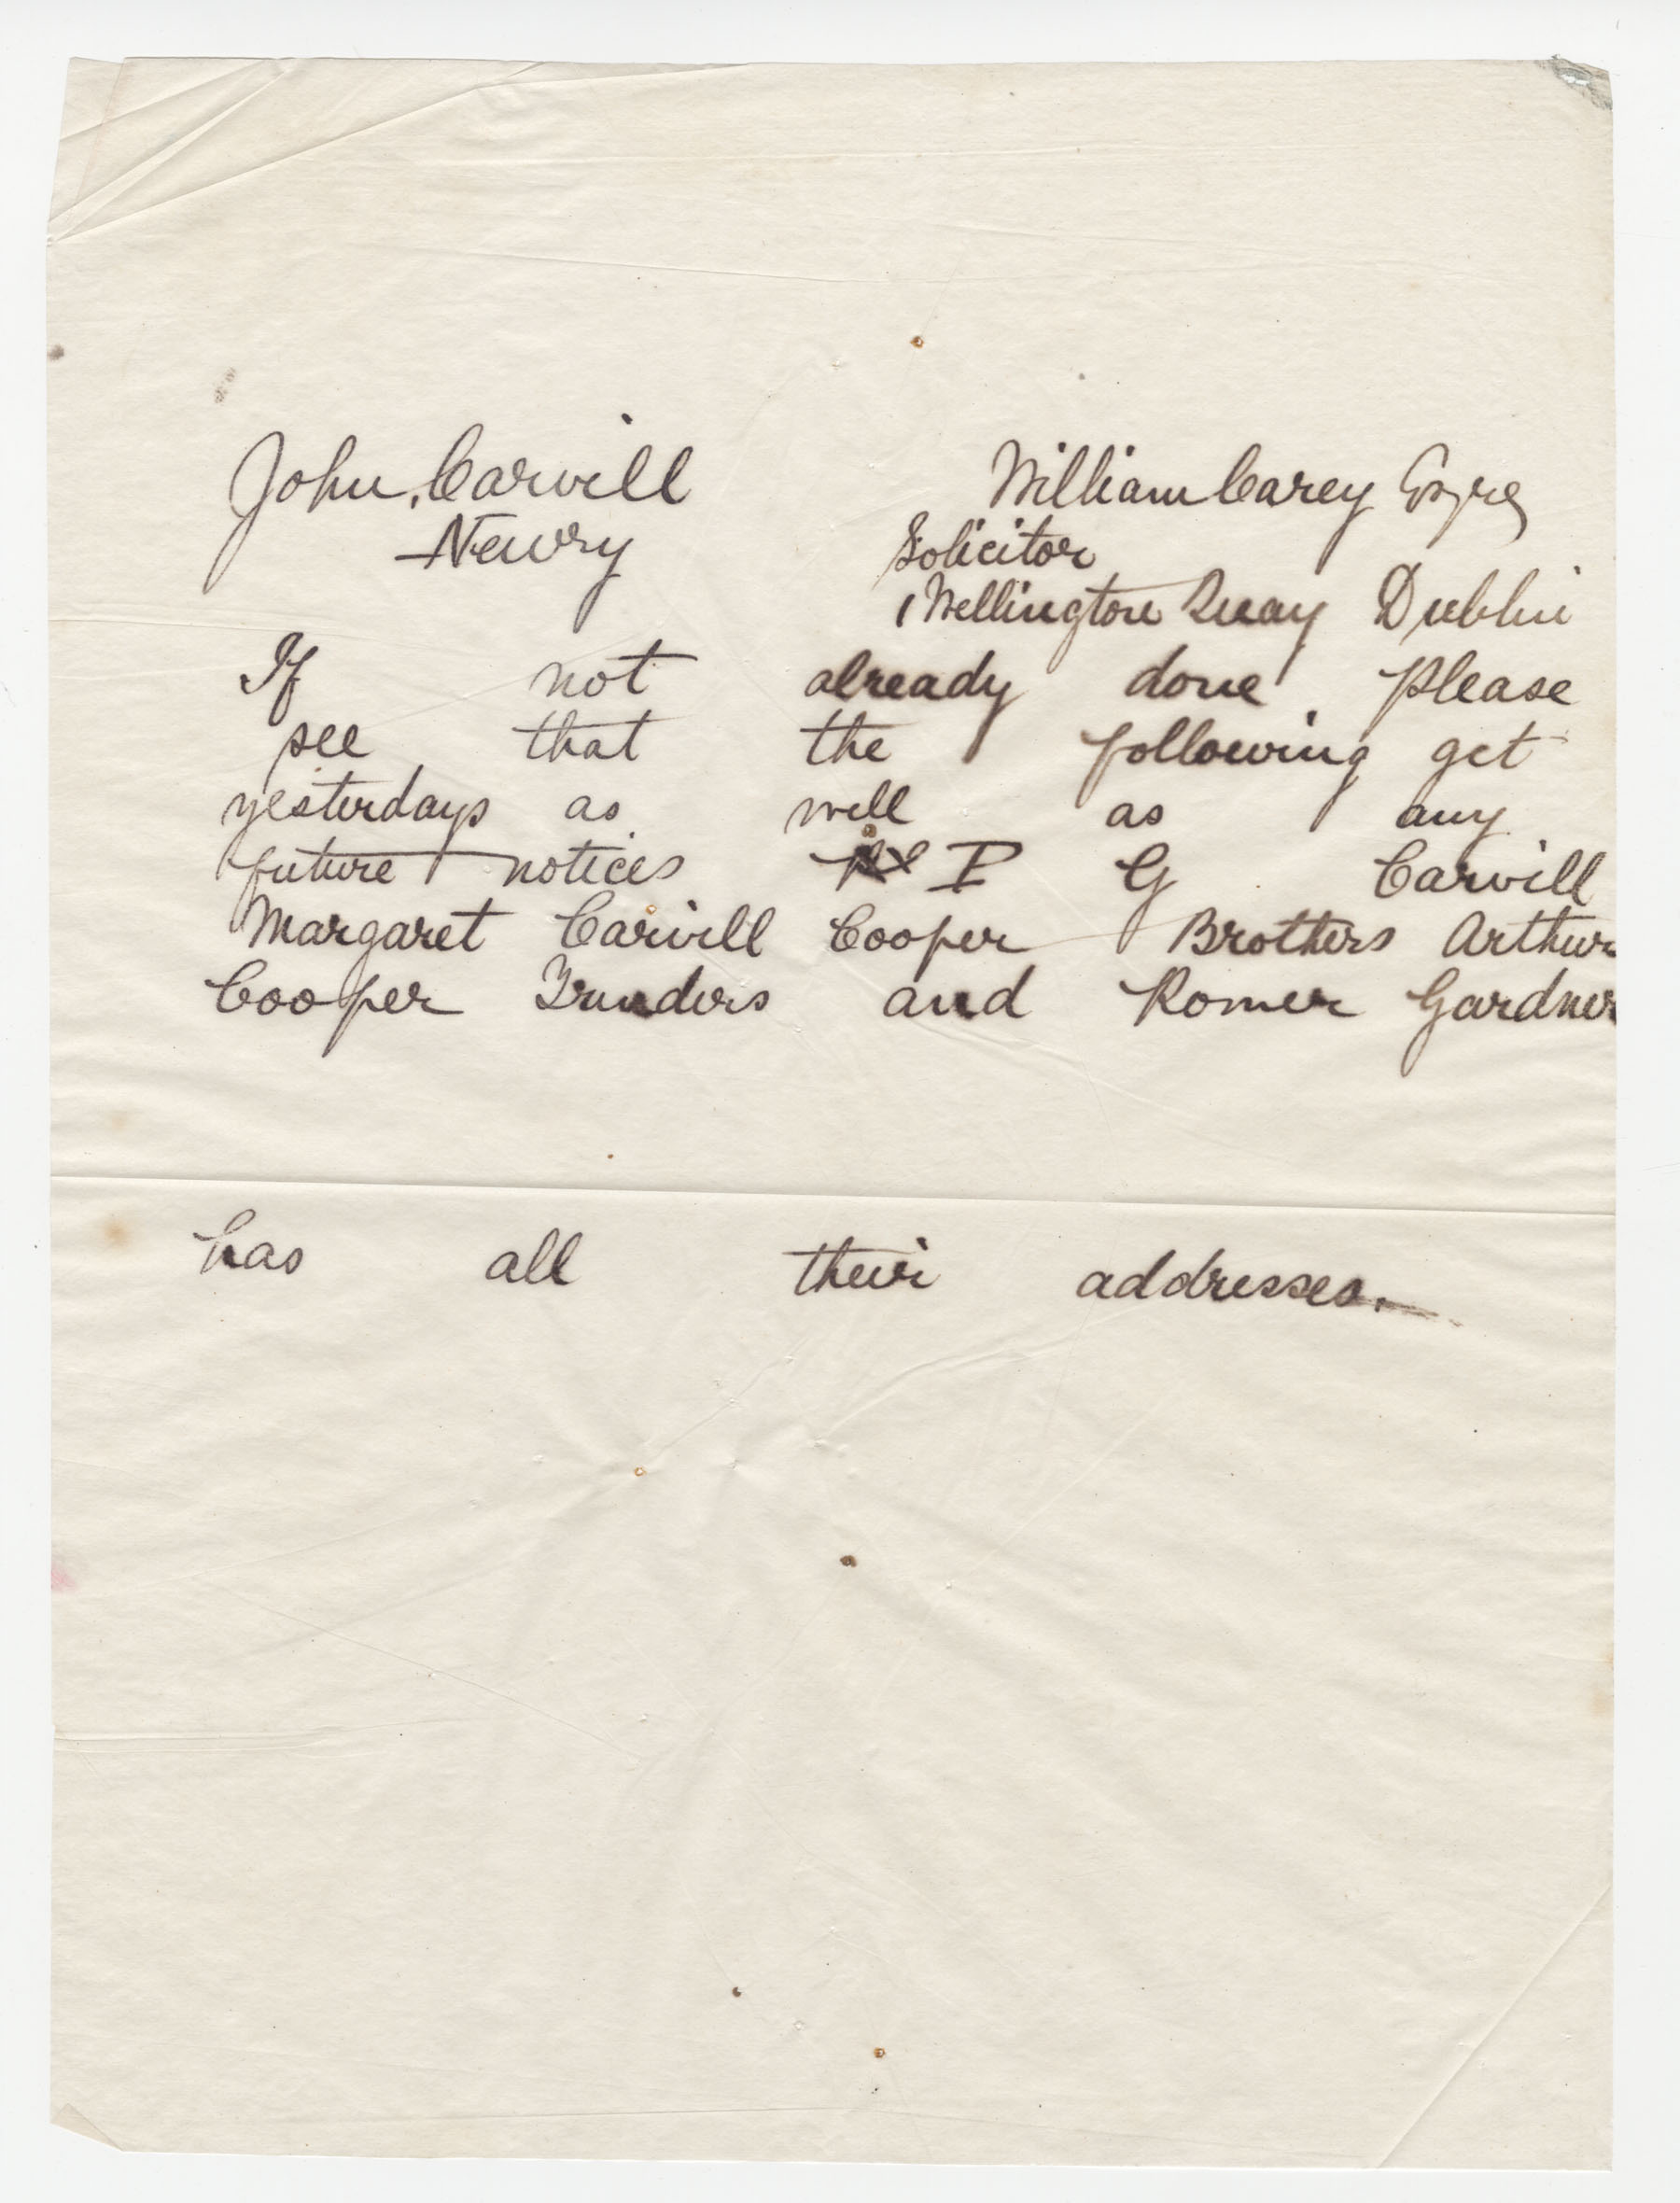 John Carvill William Carey Esqre
Newry Solicitor
1 Wellington Quay Dublin
If not already done please
see that the following get
yesterdays as well as any
future notices P G Carvill
Margaret Carvill Cooper Brothers Arthur
Cooper Trunders and Romer Gardner
has all their addresses.